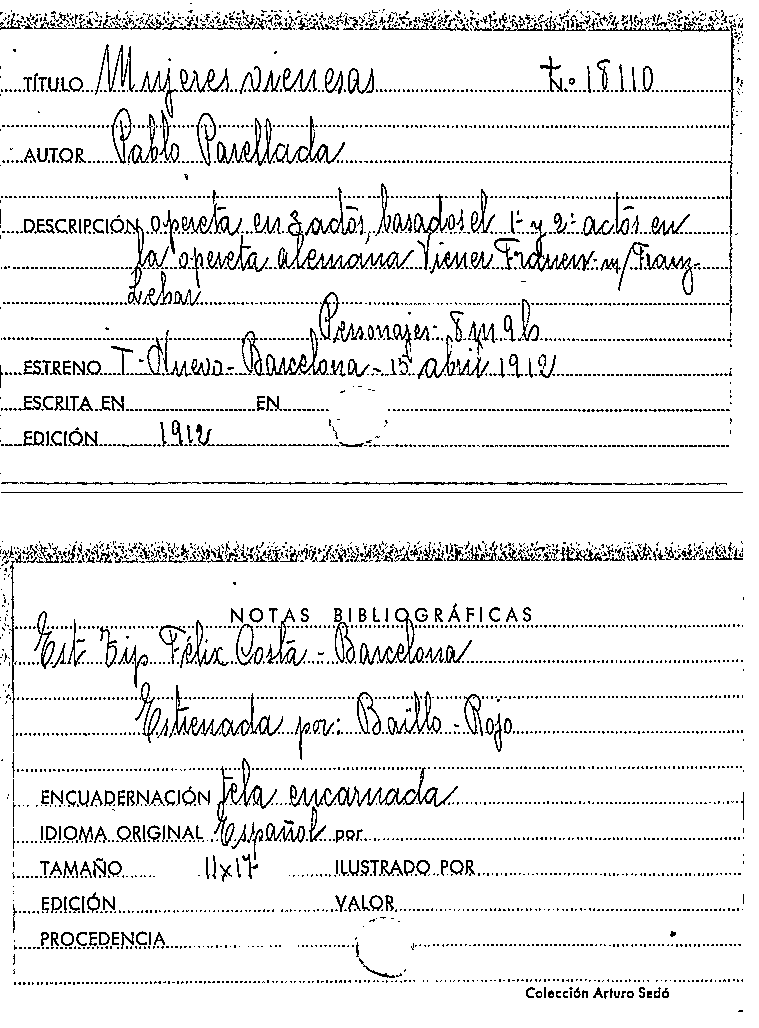 TÍTULO Mujeres vienesas t. 18110
AUTOR Pablo Parellada
DESCRIPCIÓN opereta en 3 actos, basados el 1º y 2º actos en
la opereta alemana Viener Frauen m/ Franz
Lehar
Personajes: 8 m 9 h
ESTRENO T. Nuevo - Barcelona - 15 abril 1912
ESCRITA EN EN
EDICIÓN 1912
NOTAS BIBLIOGRÁFICAS
Est Tip Félix Costa - Barcelona
Estrenada por: Baillo - Rojo
ENCUADERNACIÓN tela encarnada
IDIOMA ORIGINAL Español por
TAMAÑO 11x17 ILUSTRADO POR
EDICIÓN VALOR
PROCEDENCIA
Colección Arturo Sedó